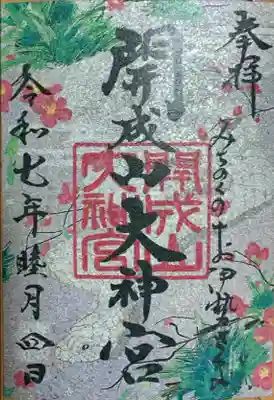 奉拝
みちのくのお伊勢さま
開成山大神宮
開成山
大神宮
令和七年睦月四日